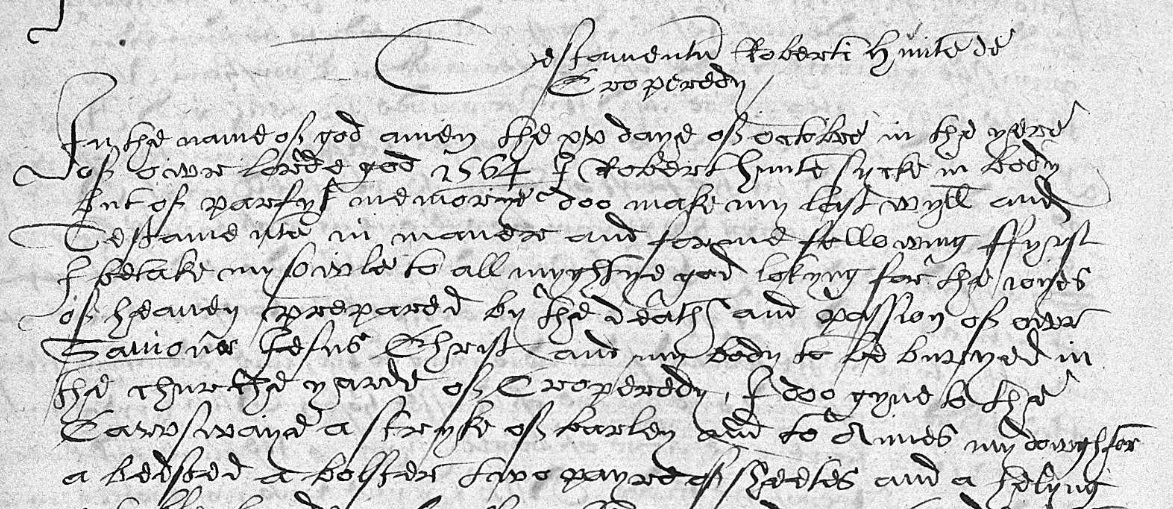 Testamentu Roberti Hunte de
Croperedy
In the name of god amen the xv daye of octobre in the yere
of owr lorde god 1564 I Robert Hunte sycke in body
but of parfyt memorye doo make my last wyll and
Testamente in manere and forme followyng ffyrst
I betake my sowle to allmyghtye god lokyng for the ioyes
of heaven prepared by the death and passion of owr
Saviour Jesus Christ and my body to be buryed in
the churche yarde of Croperedy, I doo gyve to the
Cawswaye a stryke of barley and to Annes my dowghter
a bedsted a bolster two payre of sheetes and a helyng